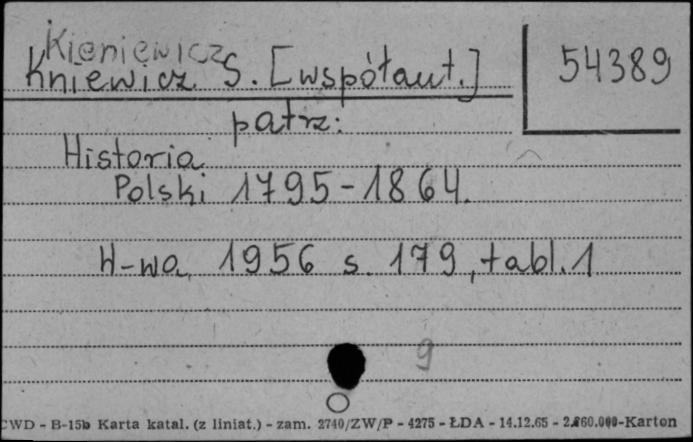 Kieniewicz
Kniewicz S. [współaut.]
54389
patrz:
Historia
Polski 1795-1864.
W-wa 1956 s. 179, tabl. 1
9
CWD - B-15b Karta katal. (z liniat.) - zam. 2740/ZW/P - 4275 - ŁDA - 14.12.65 - 2.860.000-Karton